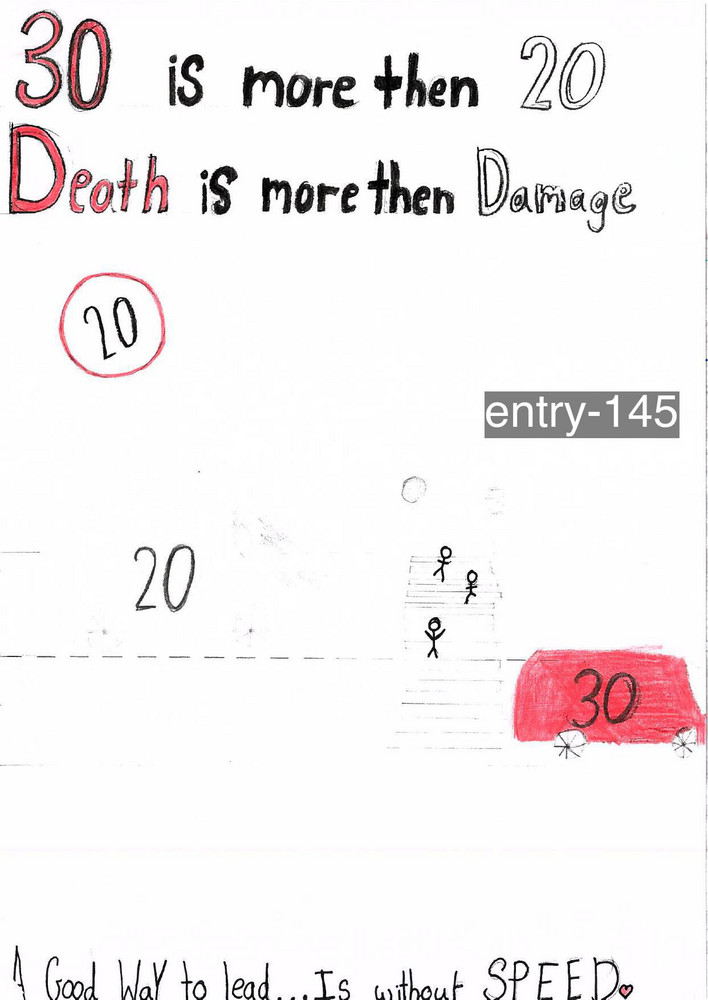 30 is more then 20
Death is more then Damage
20
entry-145
20
30
A Good Way to lead...Is without SPEED